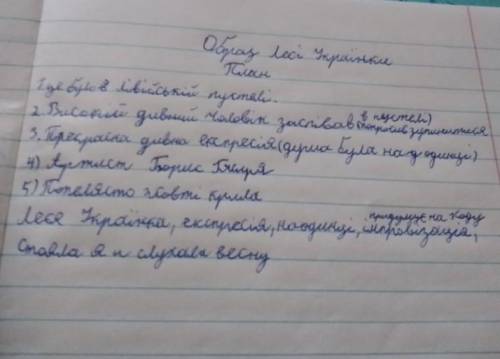 Образ Лесі Українки
План
1. Це було в Лівійській пустелі.
2. Високий дивний чоловік заспівав в пустелі (попросив зупинитися)
3. Прекрасна дивна експресія (душа була на одинці)
4) Артист Борис
5) Попелясто жовті крила
Леся Українка, експресія, наодинці, придумує на ходу імпровізація,
Стояла я и слухала весну